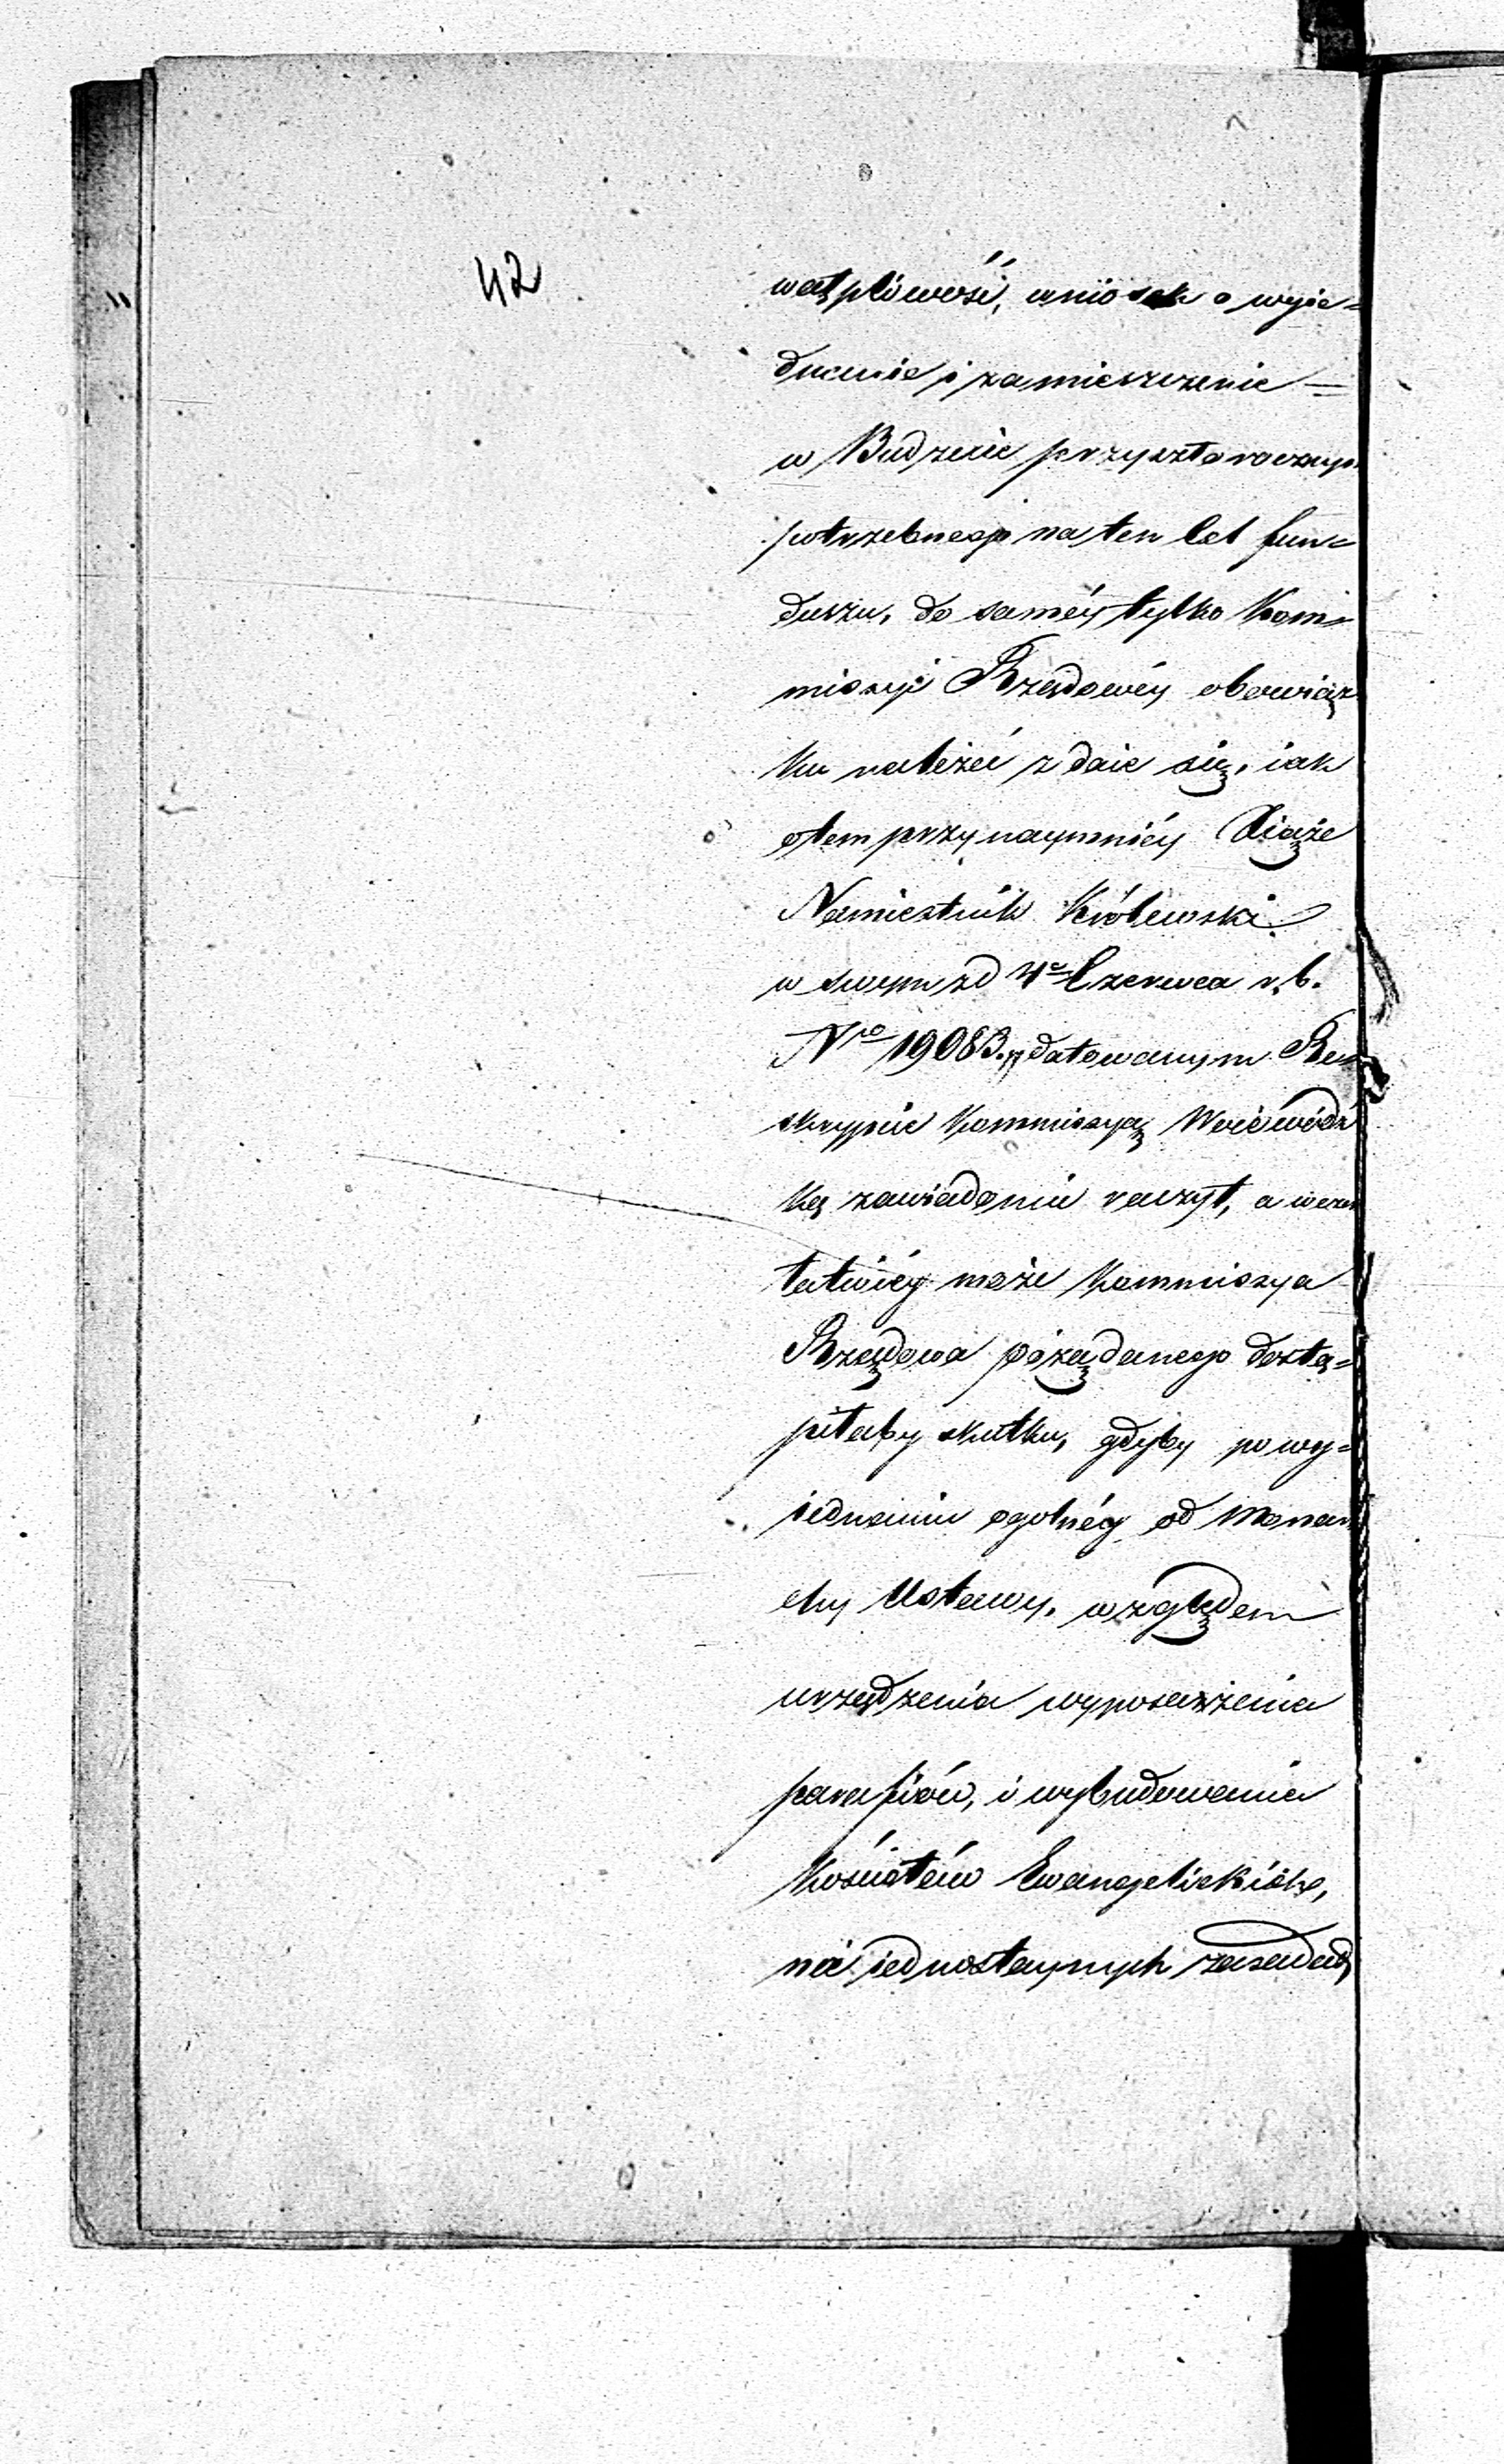 42
wątpliwość, wniosek o wyie=
dnanie i zamieszczenie =
w Budżecie przyszłorocznym
potrzebnego na ten cel fun=
duszu, do saméy tylko Kom=
missyi Rządowéy obowiąz
ku należéć zdaie się, iak
otem przynaymniéy Xiąże
Namiestnik Królewski
w swym zd 4º Czerwca r. b.
Nro 19083. datowanym Re=
skrypcie Kommissyą Woiewódz
ką zawiadomić raczył, a wczem
łatwiéy może Kommissya
Rządowa pożądanego dostą=
piłaby skutku, gdyby po wy=
iednaniu ogólnéy od Monar
chy Ustawy, względem
urządzenia wyposażenia
parafiów, i wybudowania
Kościołów Ewangelickich,
na iednostaynych zasadach